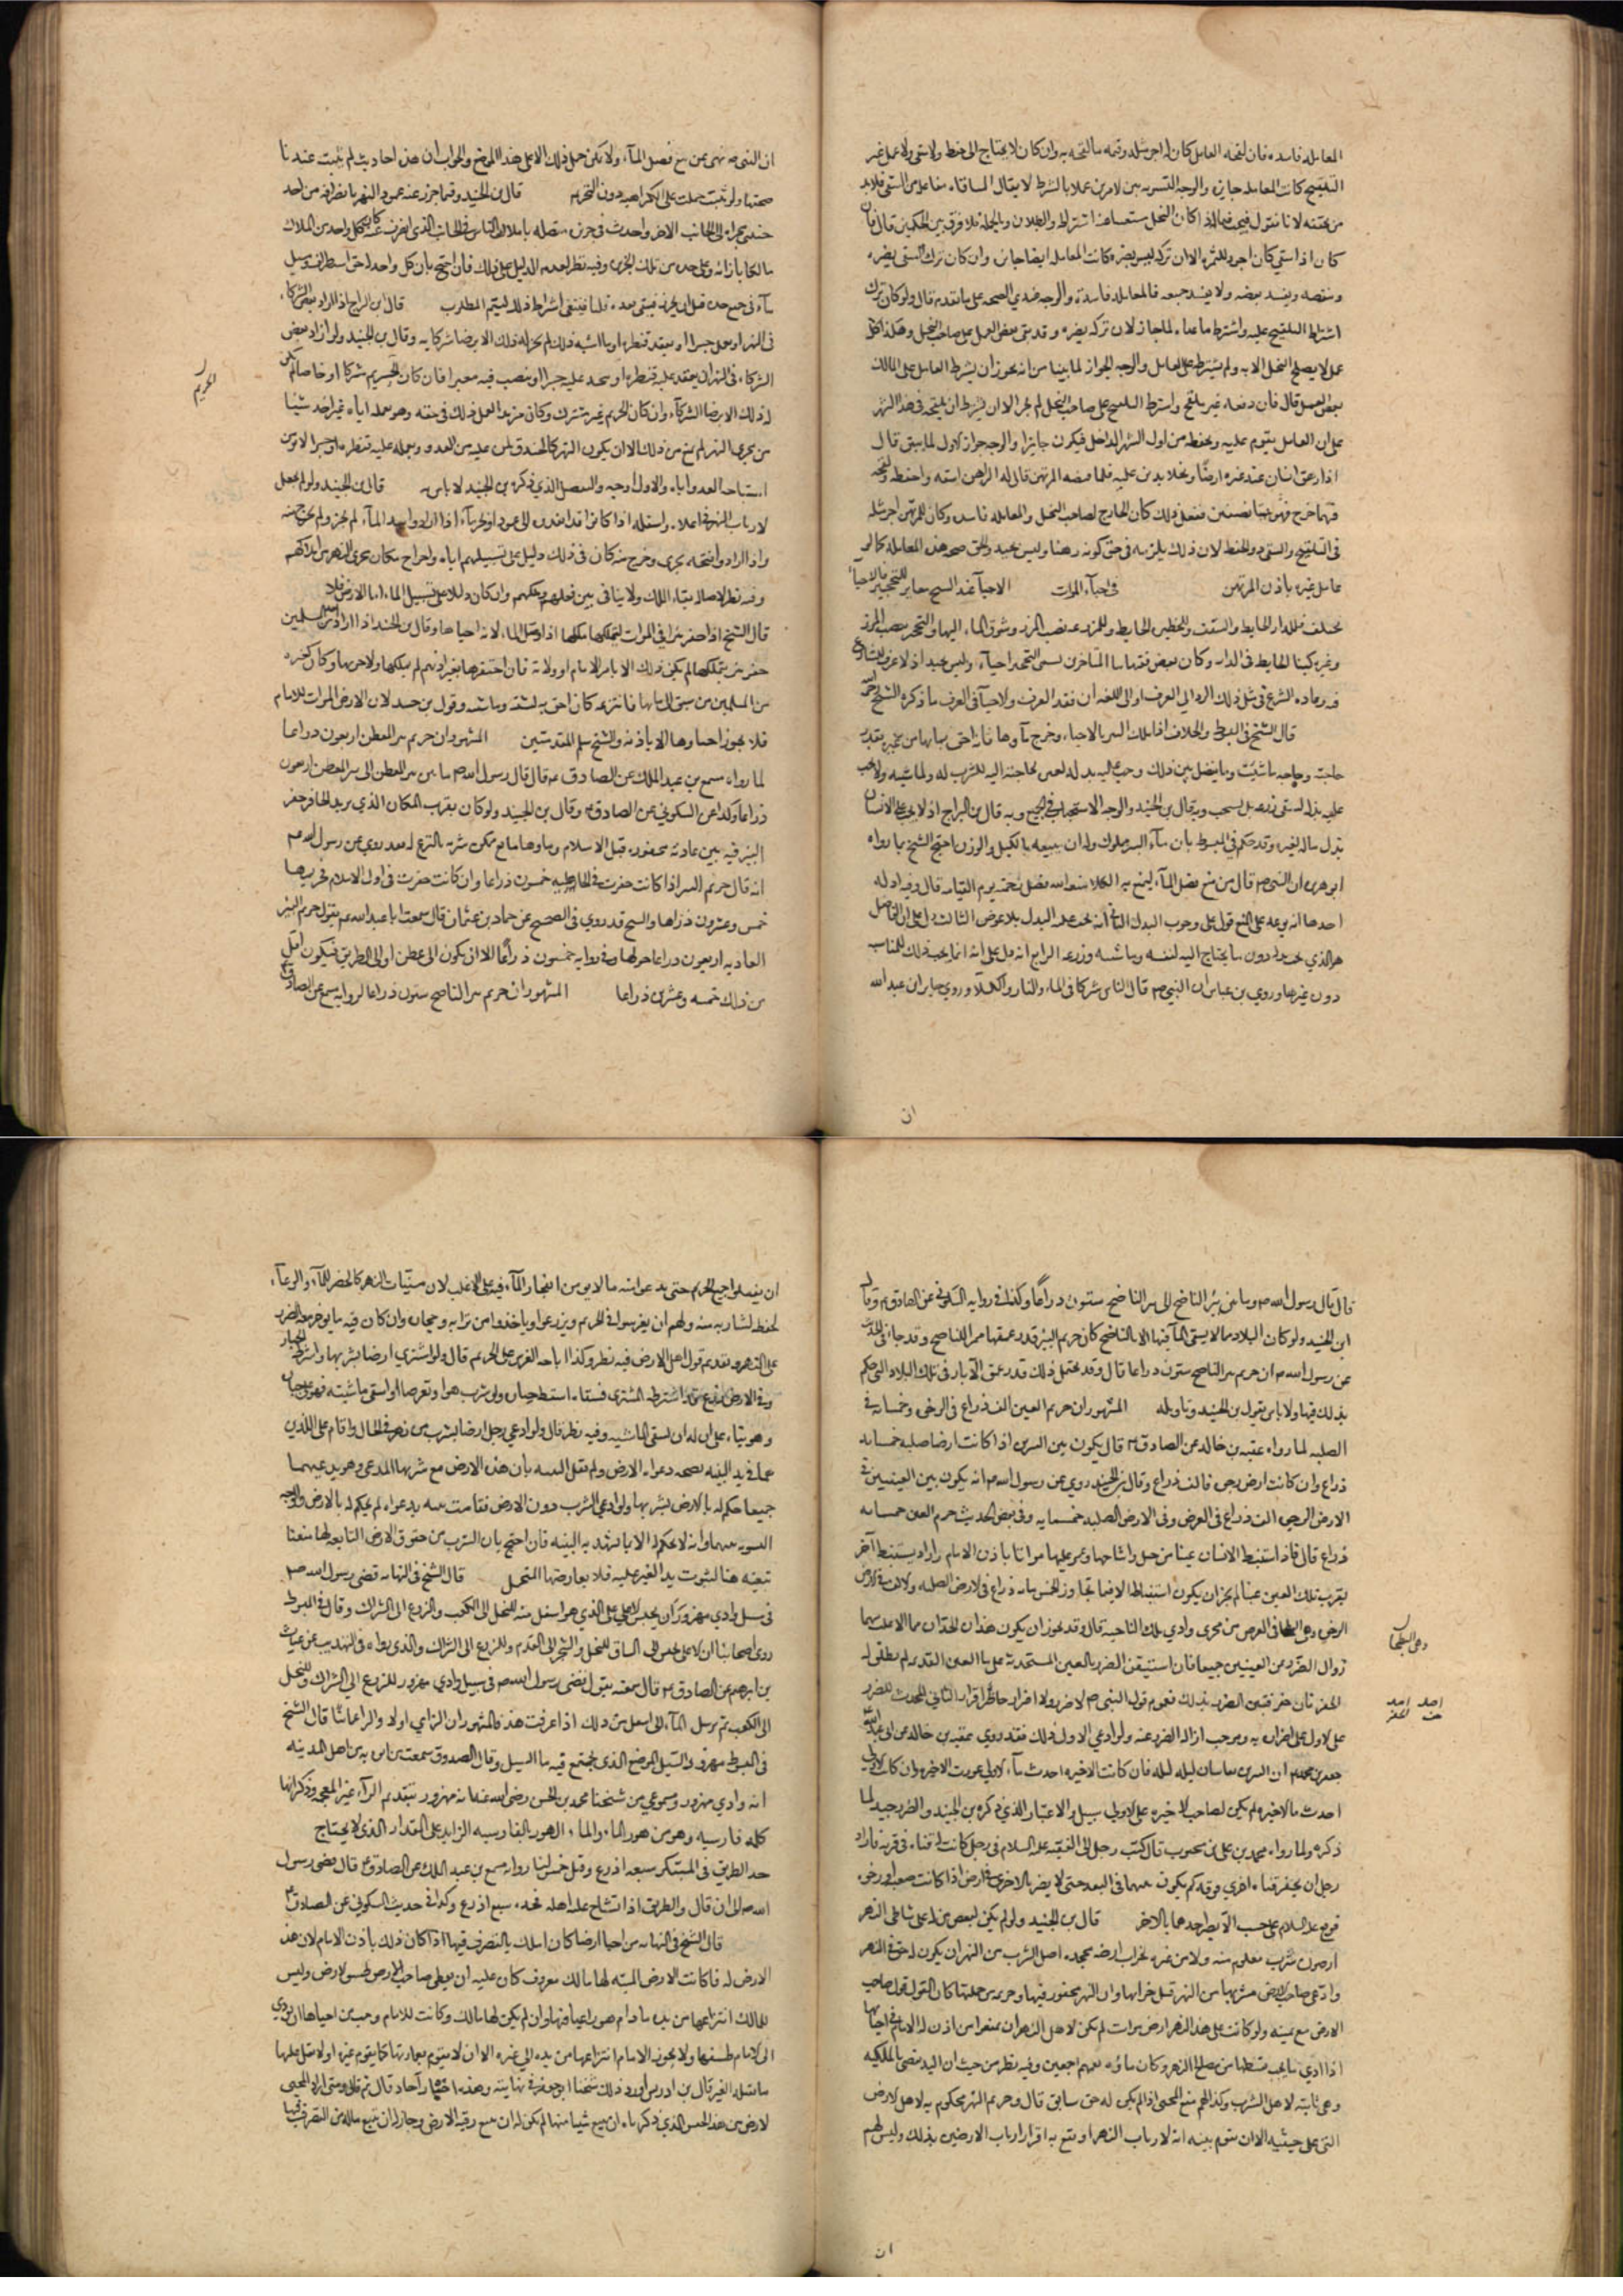 المعاملة فاسدة فان لقحه العامل كان له اجر مثله وقيمة ما لقحه به وان كان لا يحتاج الى حفظ ولا سقي ولا عمل غير
التلقيح كانت المعاملة جايزة والوجه التسوية بين الامرين عملا بالشرط لا يقال المساقاة مفاعلة من السقي فلا بد
من تحققه لانا نقول فيما اذا كان النخل يستغنى اشتراط والبطلان وبالجملة فلا فرق بين الحكمين قال فان
كان اذا سقي كان اجود للثمرة الا ان تركه ليس يضره كانت المعاملة ايضا جايزة وان كان ترك السقي يضره
وينقصه ويفسد بعضه ولا يفسد جميعه فالمعاملة فاسدة والوجه عندي الصحة على ما تقدم قال ولو كان ترك
اشتراط التلقيح عليه واشترط ما عداه لما جاز لان تركه يضره وقد بقي بعض العمل على صاحب النخل وهكذا كل
عمل لا يصلح النخل الا به ولم يشترط على العامل والوجه الجواز لما بينا من انه يجوز ان يشترط العامل على المالك
بعض العمل قال فان دفعه غير ملقح واشترط التلقيح على صاحب النخل لم يجز الا ان يشترط ان يلقحه في هذا الشهر
على ان العامل يقوم عليه ويحفظه من اول الشهر الداخل فيكون جايزا والوجه جواز الاول لما سبق قال
اذا رهن انسان عند غيره ارضا ونخلا بدين عليه فلما قبضه المرتهن قال له الراهن اسقه واحفظه ولقحه
فما خرج فهو بيننا نصفين ففعل ذلك كان الخارج لصاحب النخل والمعاملة فاسدة وكان للمرتهن اجر مثله
في التلقيح والسقي دون الحفظ لان ذلك يلزمه في حق كونه رهنا وليس بجيد والحق صحة هذه المعاملة كما لو
عامل غيره باذن المرتهن في احياء الموات الاحياء عند الشيخ مغاير للتحجير فالاحياء
يختلف فللدار الحايط والسقف وللحظيرة الحايط وللمزرعة نصب المرز وسوق الماء اليها والتحجير نصب المرز
وغيره كبنا الحايط في الدار وكان بعض فقهائنا المتاخرين يسمى التحجير احياء وليس بجيد اذ لا عرف للشارع
فيه وعادة الشرع في مثل ذلك الرد الى العرف او الى اللغة ان فقد العرف والاحياء في العرف ما ذكره الشيخ رحمه الله
قال الشيخ في المبسوط والخلاف اذا ملك البير بالاحياء وخرج ماؤها فانه احق بمائها من غيره بقدر
حاجته وحاجة ماشيته وما يفضل بين ذلك وجب عليه بذله لغيره لحاجته اليه للشرب له ولماشيته ولا يجب
عليه بذله لسقي زرعه بل يستحب وبه قال بن الجنيد والوجه الاستحباب في الجميع وبه قال بن البراج اذ لا يجب على الانسان
بذل ماله لغيره وقد حكم في المبسوط بان ماء البير مملوك وله ان يبيعه بالكيل والوزن احتج الشيخ بما رواه
ابو هريرة ان النبي ص قال من منع فضل الماء ليمنع به الكلا منعه الله فضل رحمته يوم القيامة قال وفيه ادلة
احدها انه توعد على المنع فدل على وجوب البذل الثاني انه يجب عليه البذل بلا عوض الثالث دل على ان الفاضل
هو الذي يجب بذله دون ما يحتاج اليه لنفسه وماشيته وزرعه الرابع انه دل على انه انما يجب ذلك للماشية
دون غيرها وروي بن عباس ان النبي ص قال الناس شركا في الماء والنار والكلاء وروي جابر ان عبد الله
ان
ان النبي ص نهى عن بيع فضل الماء ولا يمكن حمل ذلك الا على هذا الموضع والجواب ان هذه احاديث لم يثبت عندنا
صحتها ولو ثبت حملت على الكراهية دون التحريم قال بن الجنيد وقما جزر عنه عمود النهر بانصرافه من احد
جنبي مجراه الى الجانب الاخر واحدث في جزء متصلة باملاك الناس في الجانب الذي انحرف عنه كان لكل واحد من الملاك
ما كان بازائه وعلى حده من تلك الجزء وفيه نظر لعدم الدليل على ذلك فان احتج بان كل واحد احق
ماء في جميع حده قبل ان يجزره فيبقى بعده قلنا فينبغي اشتراط ذلك ليتم المطلوب قال بن البراج اذا اراد بعض الشركاء
في النهر ان يعمل جسرا او يعقد قنطرة او ما اشبه ذلك لم يجز له ذلك الا برضا شركايه وقال بن الجنيد ولو اراد بعض
الشركاء في النهر ان يعقد عليه قنطرة او يمد عليه جسرا او ينصب فيه معبرا فان كان الحريم شركا او خاصا لم يكن
له ذلك الا برضا الشركاء وان كان الحريم غير مشترك وكان مريد العمل ذلك في حقه وهو بعمله اياه غير اخذ شيئا
من مجرى النهر لم يمنع من ذلك الا ان يكون النهر كالخندق لمن عليه من العدو ويعمله عليه قنطرة او جسرا لا تومن
استباحة العدو اياه والاول وجيه والتفصيل الذي ذكره بن الجنيد لا باس به قال بن الجنيد ولو لم يجعل
لارباب النهر في اعلاه واسفله اذا كانوا قد
واذا ارادوا تنحيته بجرى وخرج منه كان في ذلك دليل على تسبيلهم اياه واخراج مكان مجرى النهر من املاكهم
وفيه نظر لاصالة بقاء الملك ولا ينافى بين فعلهم وحكمهم وان كان دالا على تسبيل الماء اما الارض فلا
قال الشيخ اذا حفر بئرا في الموات ليتملكها ملكها اذا وصل الماء لانه احياها وقال بن الجنيد اذا اراد من المسلمين
حفر بئر يتملكها لم يكن ذلك الا بامر الامام او ولاته فان احتفرها بغير اذنهم لم يملكها ولا حريمها وكان كغيره
من المسلمين من سبق الى مائها فانتزعه كان احق به لسقيه وماشيته وقول بن جنيد لان الارض الموات للامام
فلا يجوز احياوها الا باذنه والشيخ سلم المقدمتين المشهور ان حريم بير المعطن اربعون ذراعا
لما رواه مسمع بن عبد الملك عن الصادق ع قال قال رسول الله ص ما بين بير المعطن الى بير المعطن اربعون
ذراعا وكذا عن السكوني عن الصادق ع وقال بن الجنيد ولو كان بقرب المكان الذي يريد الحافر حفر
البير فيه بين عادية محفورة قبل الاسلام وماوها مانع ممكن شربه بالنزع له بعد روي عن رسول الله ص
انه قال حريم البير اذا كانت حفرت في الجاهلية خمسون ذراعا وان كانت حفرت في اول الاسلام فحريمها
خمس وعشرون ذراعا والشيخ قد روي في الصحيح عن حماد بن عثمان قال سمعت ابا عبد الله ع يقول حريم البئر
العادية اربعون ذراعا حولها وفي رواية خمسون ذراعا الا ان يكون الى عطن او الى الطريق فيكون اقل
من ذلك خمسة وعشرين ذراعا المشهور ان حريم بير الناضح ستون ذراعا لرواية مسمع عن الصادق ع
الحريم
قال قال رسول الله ص وما بين بئر الناضح الى بير الناضح ستون ذراعا وكذا في رواية السكوني عن الصادق ع وقال
ابن الجنيد ولو كان البلاد مما لا يسقى الماء فيها الا بالناضح كان حريم البئر قدر عمقها ممرا للناضح وقد جاء في الحديث
عن رسول الله ص ان حريم بير الناضح ستون ذراعا قال وقد يحتمل ذلك قدر عمق الآبار في تلك البلاد التي حكم
بذلك فيها ولا باس بقول بن الجنيد وتاويله المشهور ان حريم العين الف ذراع في الرخوة وخمسمائة في
الصلبة لما رواه عقبة بن خالد عن الصادق ع قال يكون بين البيرين اذا كانت ارضا صلبة خمسمائة
ذراع وان كانت ارض رخوة فالف ذراع وقال بن الجنيد روي عن رسول الله ص انه يكون بين العينين في
الارض الرخوة الف ذراع في العرض وفي الارض الصلبة خمسمايه وفي بعض الحديث حريم العين خمسمائة
ذراع قال فاذا استنبط الانسان عينا من جبل واساحها وعمر عليها مواتا باذن الامام واراد يستنبط آخر
بقرب تلك العين عينا لم يجز ان يكون استنباطه الا فيما تجاوز الخمس مائة ذراع في الارض الصلبة والالف في الارض
الرخوة وهي البطحا في العرض من مجرى وادي تلك الناحية قال وقد يجوز ان يكون هذان الحدان مما الاغلب بهما
زوال الضرر عن العينين جميعا فان استيقن الضرر بالعين المستحدثة على ماء العين القديمة لم يطلق له
الحفر فان حفر فتبين الضرر بذلك فعموم قول النبي ص لا ضرر ولا اضرار حاظر اقرار الثاني المحدث للضرر
على الاول على اضراره به وموجب ازالة الضرر عنه ولو ادعى الاول ذلك فقد روي عقبة بن خالد عن ابي عبد الله
جعفر بن محمد ع ان البيرين يقاسان ليلة ليلة فان كانت الاخيرة اخذت ماء الاولى عورت الاخيرة وان كانت الاولى
اخذت ماء الاخيرة لم يكن لصاحب الاخيرة على الاولى سبيل والاعتبار الذي ذكره بن الجنيد والضرر جيد لما
ذكره ولما رواه محمد بن علي بن محبوب قال كتب رجل الى الفقيه عليه السلام في رجل كانت له قناة في قرية فاراد
رجل ان يحفر قناة اخرى فوقه كم يكون بينهما في البعد حتى لا يضر بالاخرى في ارض اذا كانت صعبة او رخوة
فوقع عليه السلام على حسب ان لا يضر احدهما بالاخر قال بن الجنيد ولو لم يكن لبعض من اعلى شاطى النهر
ارضون شرب معلوم منه ولا من غيره لخراب ارضه مجحد اصل الشرب من النهر ان يكون له حق في النهر
وادعى صاحب الارض شربها من النهر قبل خرابها وان النهر محفور فيها وحريمه من جملتها كان القول قول صاحب
الارض مع يمينه ولو كانت على هذا النهر ارض موات لم يكن لاهل النهر ان يمنعوا من اذن له الامام في احيائها
اذا ادى ما يجب قسطها من مصلح النهر وكان ماؤه يعمهم اجمعين وفيه نظر من حيث ان اليد تقضي بالملكية
وهي ثابتة لاهل الشرب وكذا لهم منع المحيي اذا لم يكن له حق سابق قال وحريم النهر محكوم به لاهل الارض
التي على حيثيه الا ان تقوم بينة انه لارباب النهر او يقع به اقرار ارباب الارضين بذلك وليس لهم
وهي البطحا
ان
ان يفسدوا جميع الحريم حتى يدعوا منه ما لا بد من انفجار الماء فيه على الاغلب لان مسنيات النهر كالحصر للماء والوعاء
لحفظ لشاربه منه ولهم ان يغرسوا في الحريم ويزرعوا ويأخذوا من ترابه وحجارته وان كان فيه ما يوخر معه الضرر
على النهر وتقديم قول اهل الارض فيه نظر وكذا اباحة الغرس على الحريم قال ولو اشترى ارضا بشربها واشترط الخيار
وفي الارض زرع قد اشترطه المشترى فسقاه اسقط خياره ولو شرب هو او توضا او اسقى ماشيته فهو على خياره
وهو بناء على ان له ان يسقى الماشية وفيه نظر قال ولو ادعى رجل ارضا بشرب من نهر في الحال واقام على اللذين
هما في يده البينة بصحة دعواه الارض ولم تقل البينة بان هذه الارض مع شربها للمدعي وهو بيد غيرهما
جميعا حكم له بالارض بشربها ولو ادعى الشرب دون الارض فقامت بينة بدعواه لم يحكم له بالارض والوجه
التسوية بينهما وانه لا يحكم له الا بما تشهد به البينة فان احتج بان الشرب من حقوق الارض التابعة لها منعنا
تبعيته هنا لثبوت يد الغير عليه فلا يعارضها المحتمل قال الشيخ في النهاية قضى رسول الله ص
في سيل وادي مهزور ان يحبس الاعلى على الذي هو اسفل منه للنخل الى الكعب والزرع الى الشراك وقال في المبسوط
روى اصحابنا ان الاعلى يحبس الى الساق للنخل والشجر الى القدم وللزرع الى الشراك والذي رواه في التهذيب عن غياث
بن ابرهيم عن الصادق ع قال سمعته يقول قضى رسول الله ص في سيل وادي مهزور للزرع الى الشراك وللنخل
الى الكعب ثم يرسل الماء الى اسفل من ذلك اذا عرفت هذا فالمشهور ان الزاي اولا والراء ثانيا قال الشيخ
في المبسوط مهزور السيل الموضع الذي يجتمع فيه ماء السيل وقال الصدوق سمعت من اثق به من اهل المدينة
انه وادي مهزور ومسموعي من شيخنا محمد بن الحسن رضي الله عنه انه مهرور بتقديم الراء غير المعجمة وذكر انها
كلمة فارسية وهو من هرز الماء والماء الهرز بالفارسية الزايد على المقدار الذي لا يحتاج
حد الطريق في المبتكر سبعة اذرع وقيل خمس لنا رواية مسمع بن عبد الملك عن الصادق ع قال قضى رسول
الله ص الى ان قال والطريق اذا تشاح عليه اهله فحده سبع اذرع وكذا في حديث السكوني عن الصادق ع
قال الشيخ في النهاية من احيا ارضا كان املك بالتصرف فيها اذا كان ذلك باذن الامام لان هذه
الارض له فان كانت الارض الميتة لها مالك معروف كان عليه ان يعطي صاحب الارض طسق الارض وليس
للمالك انتزاعها من يده ما دام هو راغبا فيها وان لم يكن لها مالك وكانت للامام وجب من احياها ان يودي
الى الامام طسقها ولا يجوز الامام انتزاعها من يده الى غيره الا ان لا يقوم بعمارتها كما يقوم غيره او لا يقبل عليها
ما يقبله الغير قال بن ادريس اورد ذلك شيخنا ابو جعفر في نهايته وهذه اخبار آحاد قال ثم قال ومتى اراد المحيي
لارض من هذا الجنس الذي ذكرناه ان يبيع شيئا منها لم يكن له ان يبيع رقبة الارض وجاز له ان يبيع ماله من التصرف فيها